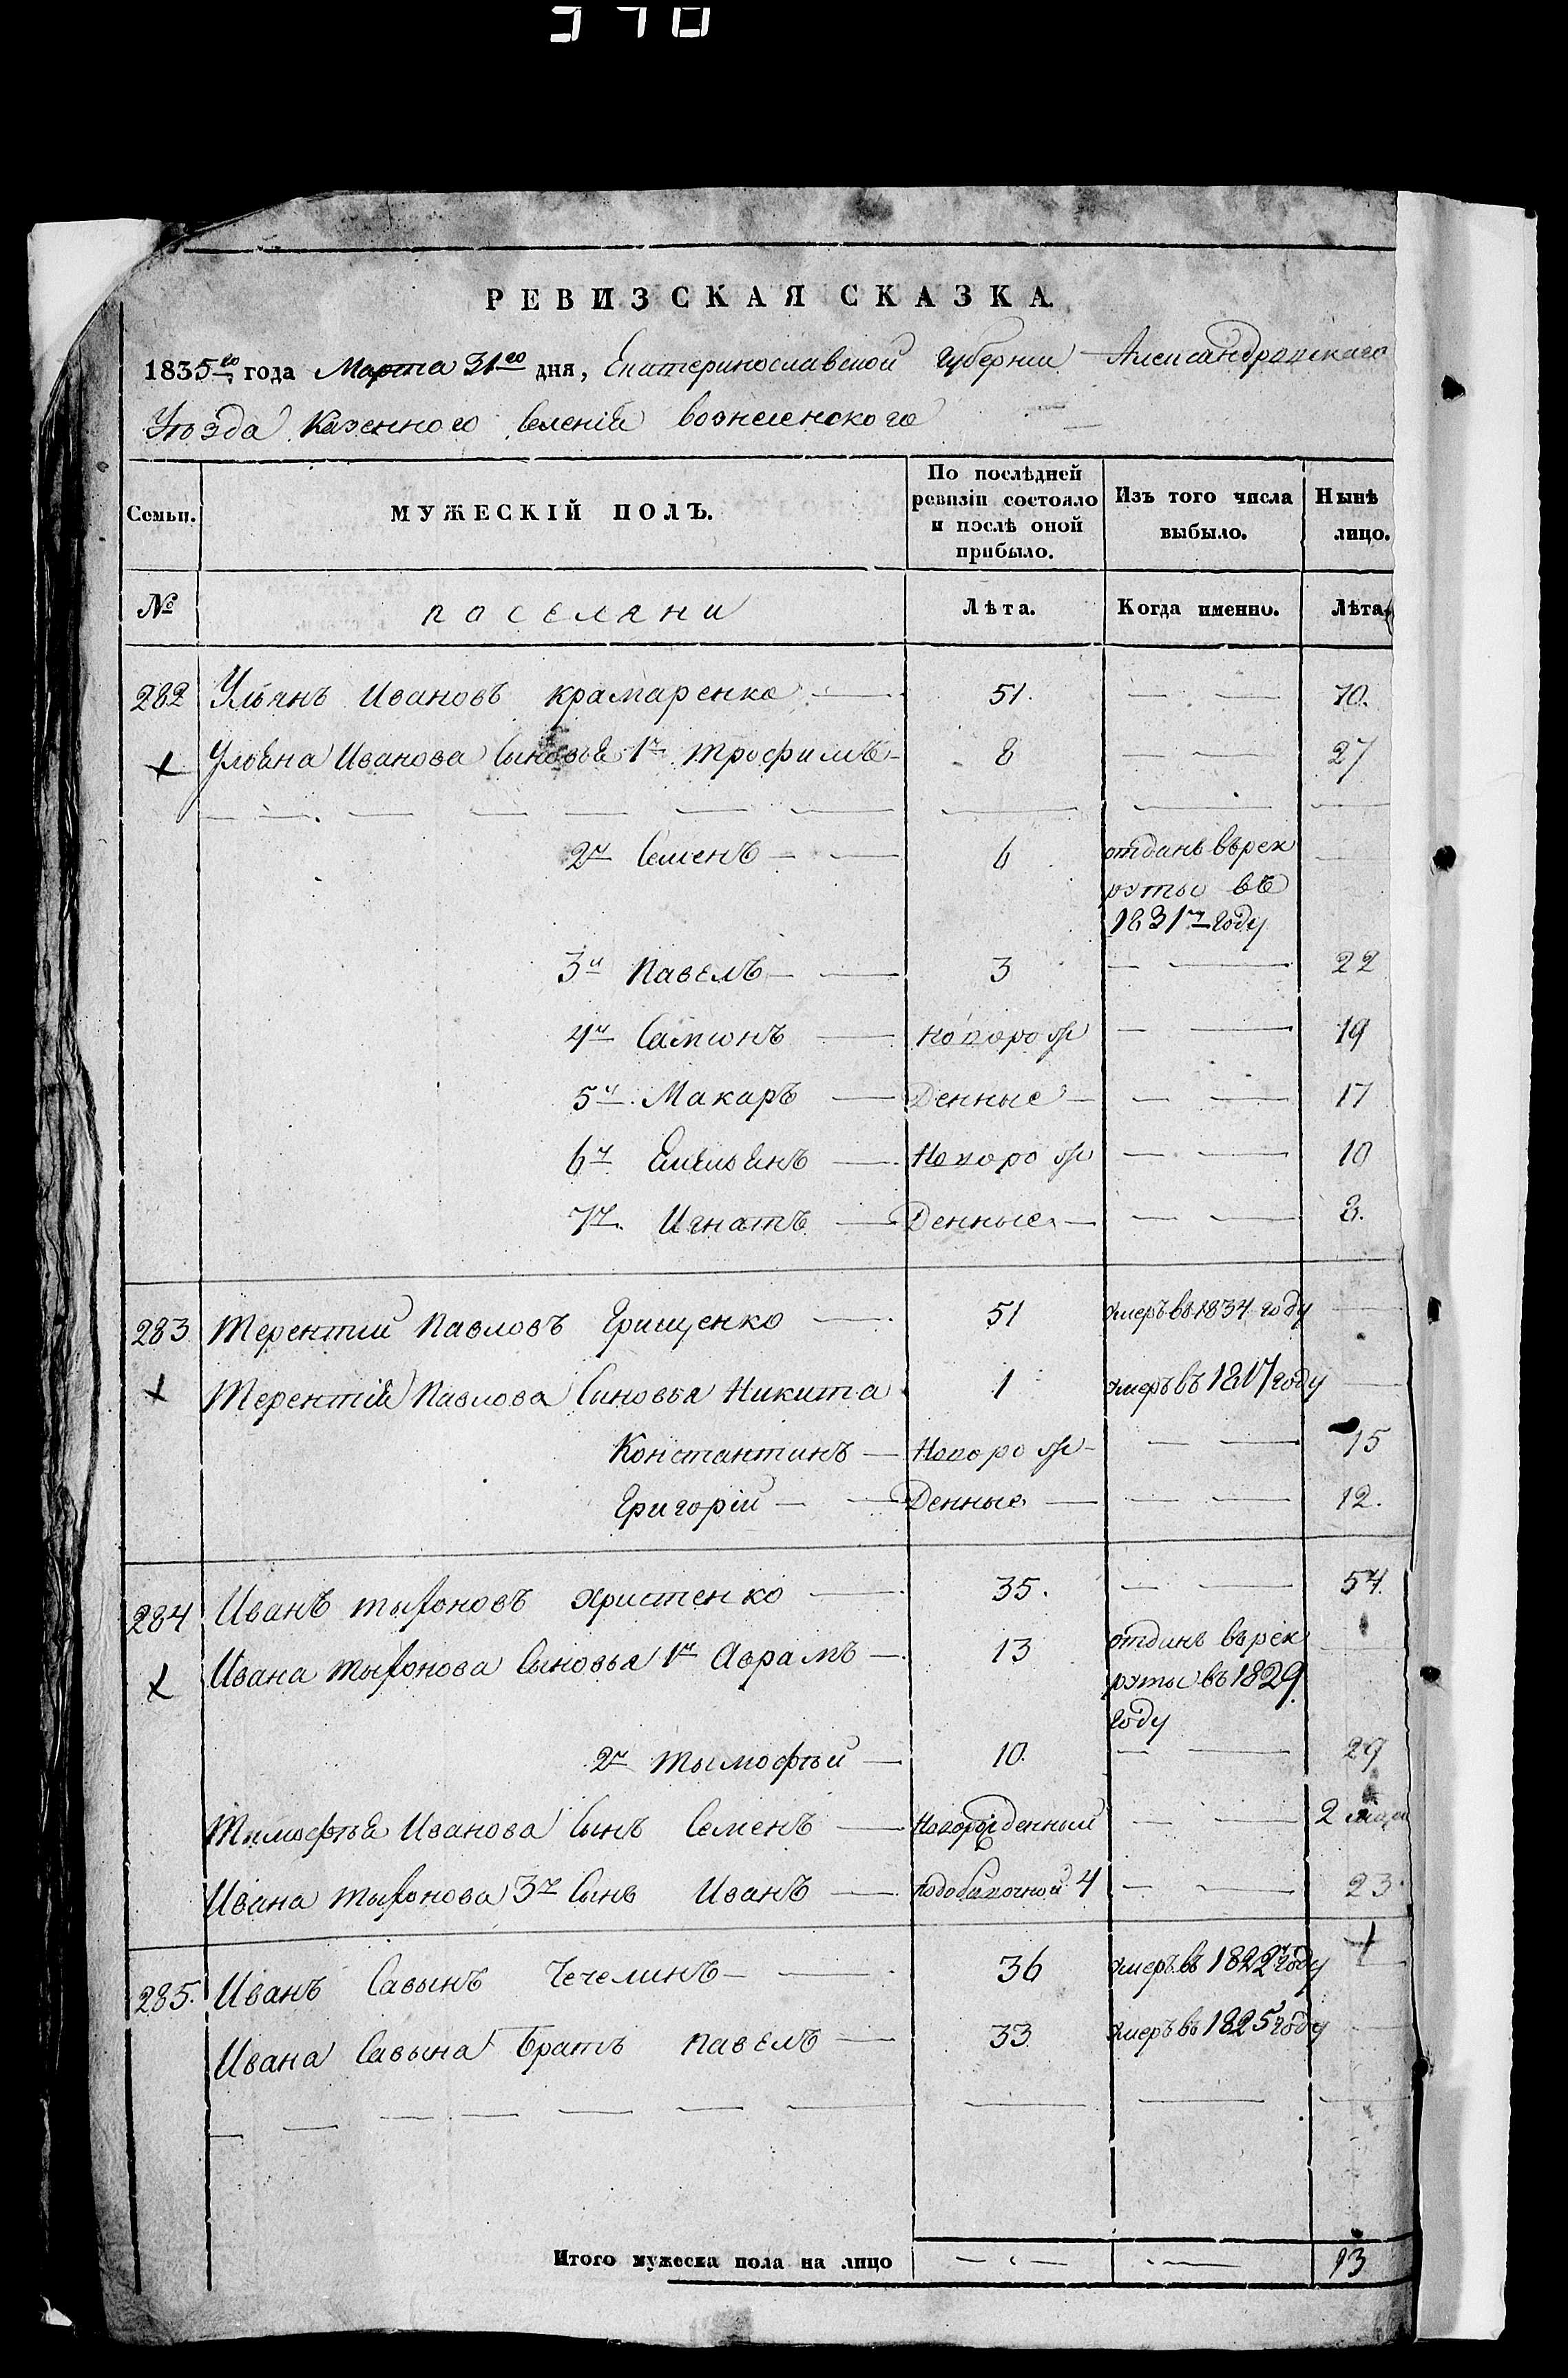 370
РЕВИЗСКАЯ СКАЗКА.
1835го года Марта 31го дня, Екатеринославской губернии Александровскаго
Уъзда Казенного Селенія Вознесенского
Семьи. МУЖЕСКІЙ ПОЛЪ. По послѣдней ревизіи состояло и послѣ оной прибыло. Изъ того числа выбыло. Нынѣ лицо.
№ поселяни Лѣта. Когда именно. Лѣта.
282 Ульянъ Ивановъ Крамаренко — 51. — — 70.
х Ульяна Иванова Сыновья 1й Трофимъ — 8 — — 27
2й Семенъ — — 6 отданъ върек
руты въ
1831м году
3й Павелъ — — 3 — — 22
4й Самионъ — Новорож — — 19
5й Макаръ — Денные — — — 17
6й Емельянъ — Новорож — — 10
7й Игнатъ — Денные — — — 3.
283 Терентий Павловъ Грищенко — 51 умеръ въ 1834 году —
х Терентія Павлова Сыновья Никита 1 умеръ въ 1817 году —
Константинъ — Новорож — — — 15
Григорій — — Денные — — — 12.
284 Иванъ Тыхоновъ Христенко — 35. — — 54.
х Ивана Тыхонова Сыновья 1й Аврамъ — 13 отданъ върек
руты въ 1829
году
2й Тымофъй — 10. — — 29
Тимофъя Иванова Сынъ Семенъ — Новорожденный — — 2
Ивана Тыхонова 3й Сынъ Иванъ — 4 — — 23
285. Иванъ Савынъ Чечелинъ — — 36 умеръ въ 1822м году —
Ивана Савына Братъ Павелъ — 33 умеръ въ 1825 году —
Итого мужеска пола на лицо — — — 13